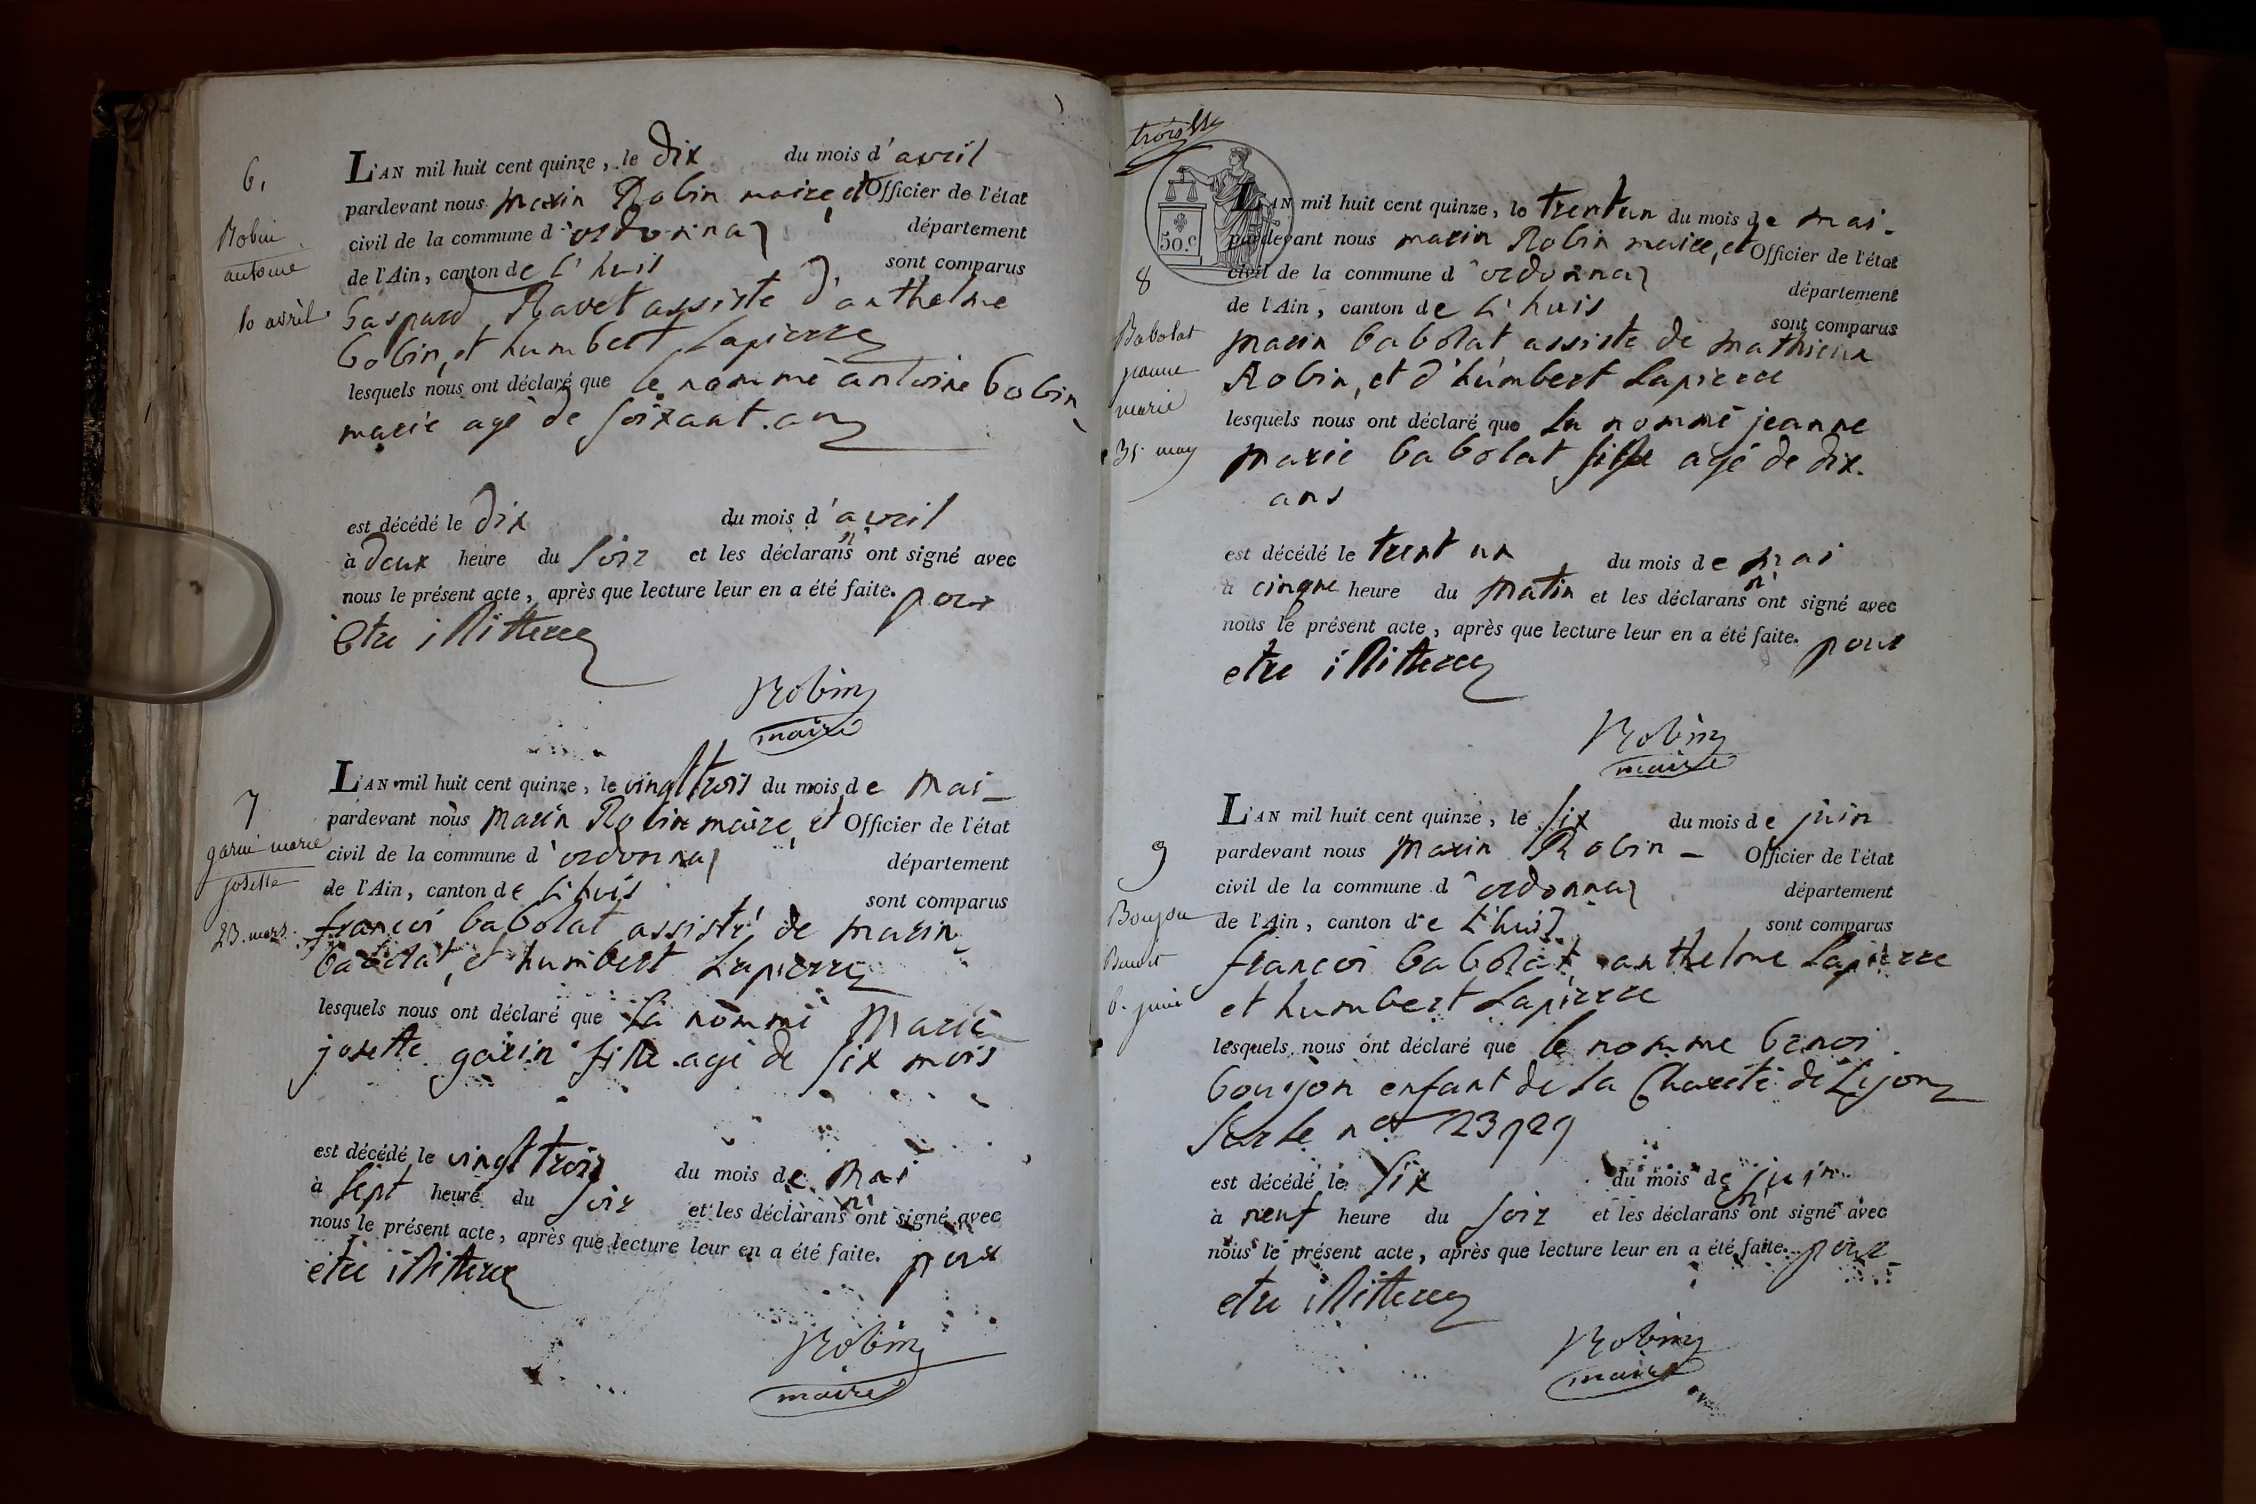 6.
Robin
antoine
10 avril.
L'AN mil huit cent quinze, le dix du mois d'avril
pardevant nous marin Robin maire, et Officier de l'état
civil de la commune d'ordonnaz département
de l'Ain, canton de l'huis sont comparus
Gaspard Ravet assiste d'anthelme
bobin, et humbert Lapierre
lesquels nous ont déclaré que le nommé antoine bobin
marié agé de soixant. an
est décédé le dix du mois d'avril
à deux heure du soir et les déclarans n'ont signé avec
nous le présent acte, après que lecture leur en a été faite. pour
Etre illitteree
Robin
maire
7
garin marie
josette
23. mars.
L'AN mil huit cent quinze, le vingt trois du mois de mai
pardevant nous marin Robin maire, et Officier de l'état
civil de la commune d'ordonnaz département
de l'Ain, canton de l'huis sont comparus
francoi babolat assisté de marin
babolat, et humbert Lapierre
lesquels nous ont déclaré que la nommé Marie
josette garin fille agé de six mois
est décédé le vingt trois du mois de mai
à sept heure du soir et les déclarans n'ont signé avec
nous le présent acte, après que lecture leur en a été faite. pour
etre illitteree
Robin
maire
50.c
8
Babolat
jeanne
marie
31. may
L'AN mil huit cent quinze, le trentun du mois de mai.
pardevant nous marin Robin maire, et Officier de l'état
civil de la commune d'ordonnaz département
de l'Ain, canton de l'huis sont comparus
marin babolat assiste de mathieux
Robin, et d'humbert Lapierre
lesquels nous ont déclaré que la nommé jeanne
marie babolat fille agé de dix.
ans
est décédé le trent un du mois de mai
à cinqne heure du matin et les déclarans n'ont signé avec
nous le présent acte, après que lecture leur en a été faite. pour
etre illitteree
Robin
maire
9
Boujon
Benoit
6. juin
L'AN mil huit cent quinze, le six du mois de juin
pardevant nous marin Robin Officier de l'état
civil de la commune d'ordonnaz département
de l'Ain, canton de l'huis sont comparus
francoi babolat, anthelme Lapierre
et humbert Lapierre
lesquels nous ont déclaré que le nomme benoi
boujon enfant de la Charité de Lyon
sur le n°
est décédé le six du mois de juin
à neuf heure du soir et les déclarans n'ont signé avec
nous le présent acte, après que lecture leur en a été faite. pour
etre illitteree
Robin
maire